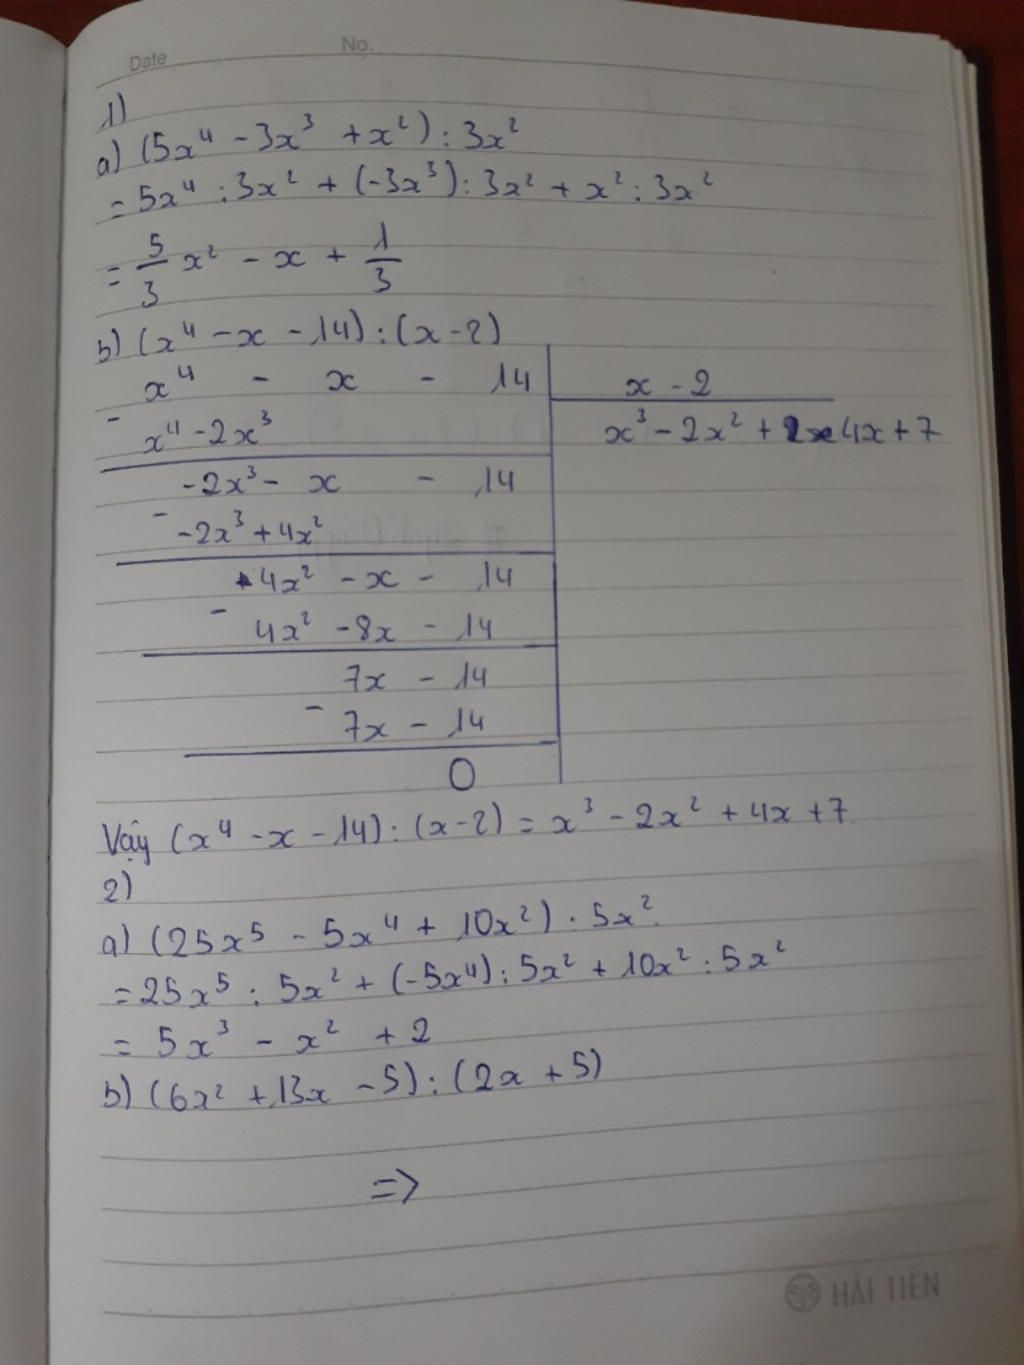 Date No.
1)
a) (5x⁴ - 3x³ + x²) : 3x²
= 5x⁴ : 3x² + (-3x³) : 3x² + x² : 3x²
= 5/3 x² - x + 1/3
b) (x⁴ - x - 14) : (x - 2)
x⁴ - x - 14 | x - 2
- x⁴ - 2x³ | x³ - 2x² + 4x + 7
-2x³ - x - 14
- -2x³ + 4x²
4x² - x - 14
- 4x² - 8x - 14
7x - 14
- 7x - 14
0
Vậy (x⁴ - x - 14) : (x - 2) = x³ - 2x² + 4x + 7
2)
a) (25x⁵ - 5x⁴ + 10x²) : 5x²
= 25x⁵ : 5x² + (-5x⁴) : 5x² + 10x² : 5x²
= 5x³ - x² + 2
b) (6x² + 13x - 5) : (2x + 5)
=>
HẢI TIẾN